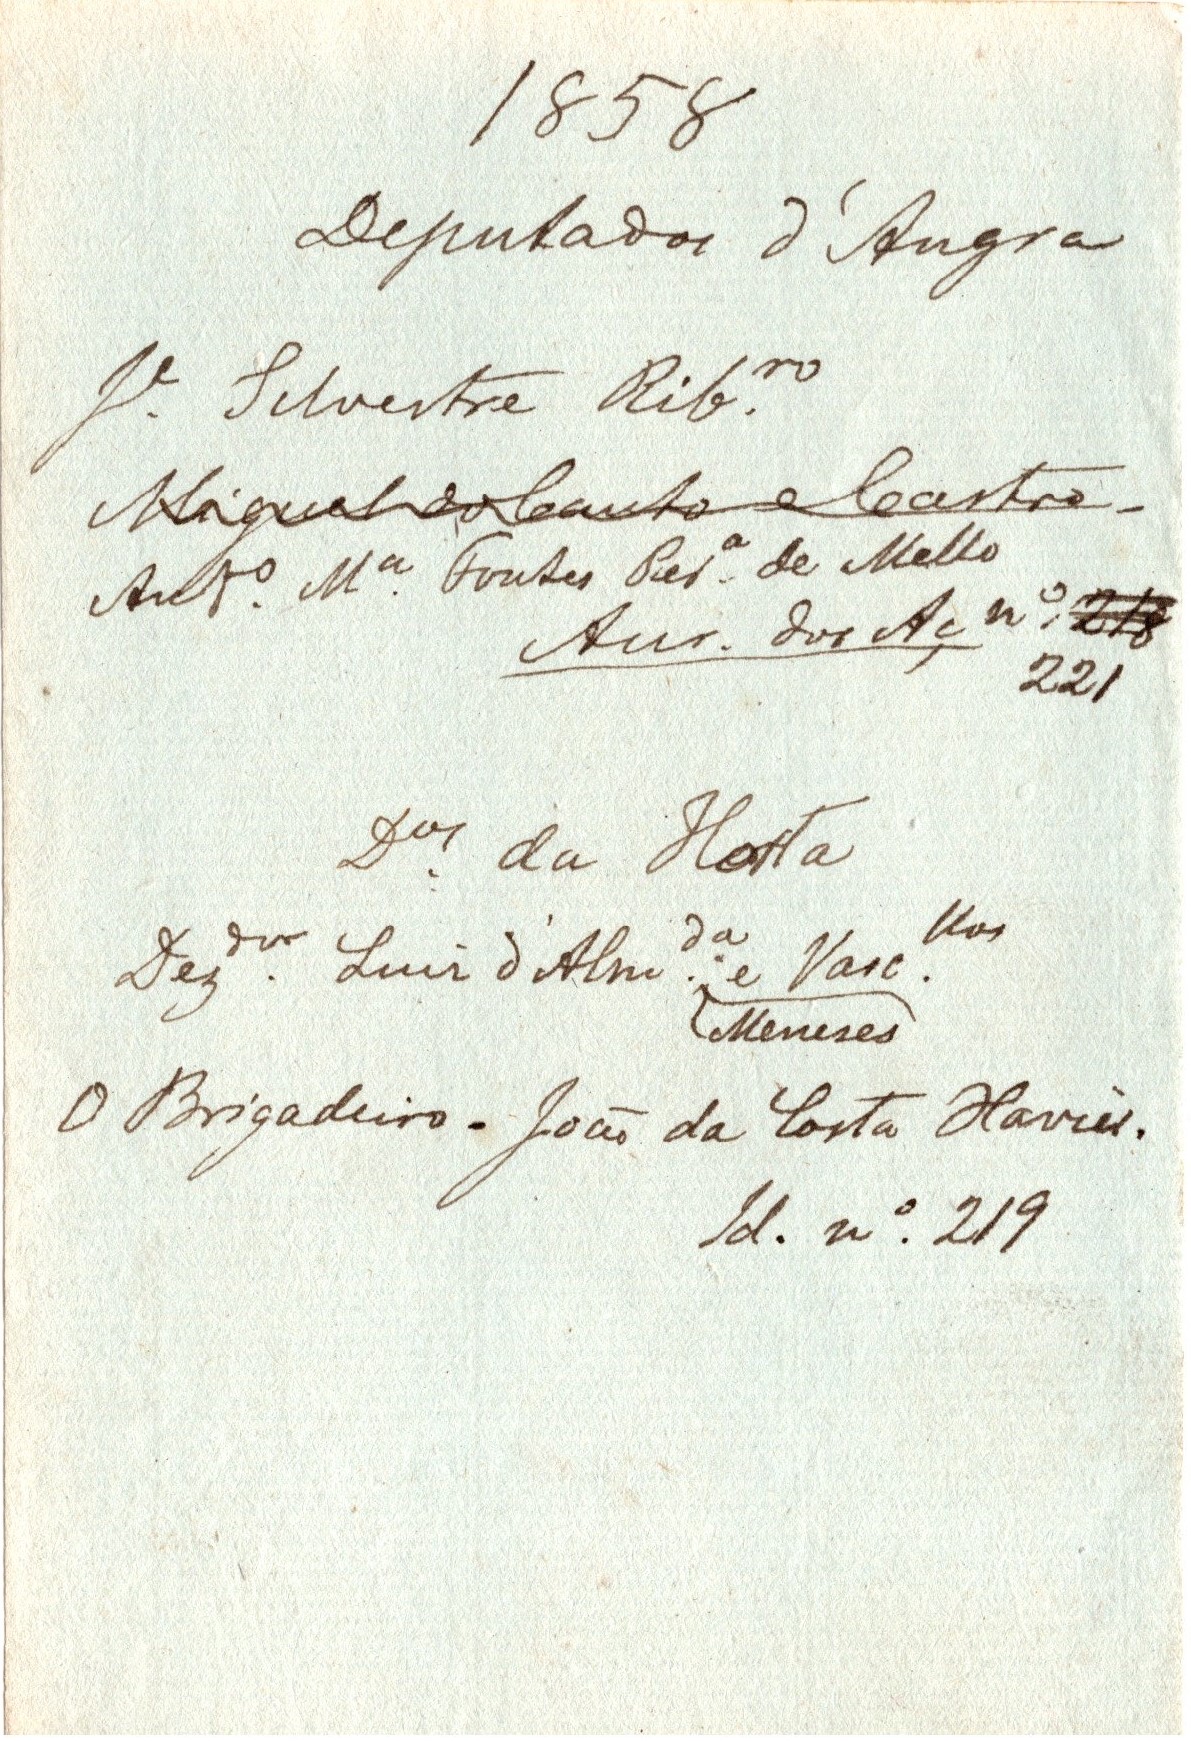 1858
Deputados d'Angra
Je. Silvestre Rib.ro
Miguel do Canto e Castro -
Anto. Ma. Fontes Per.a de Mello
Aur. dos Aç nº. 218
221
Dos. da Horta
Dezdor. Luis d'Alm.da e Vasc.llos
Meneses
O Brigadeiro - João da Costa Xavier.
Id. nº. 219